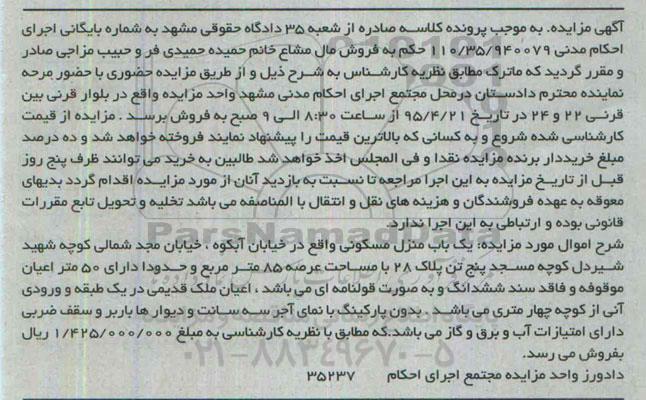 آگهی مزایده. به موجب پرونده کلاسه صادره از شعبه ۳۵ دادگاه حقوقی مشهد به شماره بایگانی اجرای
احکام مدنی ۱۱۰/۳۵/۹۴۰۰۷۹ حکم به فروش مال مشاع خانم حمیده حمیدی فر و حبیب مزاجی صادر
و مقرر گردید که ماترک مطابق نظریه کارشناس به شرح ذیل و از طریق مزایده حضوری با حضور مرحه
نماینده محترم دادستان درمحل مجتمع اجرای احکام مدنی مشهد واحد مزایده واقع در بلوار قرنی بین
قرنی ۲۲ و ۲۴ در تاریخ ۹۵/۴/۲۱ از ساعت ۸:۳۰ الی ۹ صبح به فروش برسد . مزایده از قیمت
کارشناسی شده شروع و به کسانی که بالاترین قیمت را پیشنهاد نمایند فروخته خواهد شد و ده درصد
مبلغ خریددار برنده مزایده نقدا و فی المجلس اخذ خواهد شد طالبین به خرید می توانند ظرف پنج روز
قبل از تاریخ مزایده به این اجرا مراجعه تا نسبت به بازدید آنان از مورد مزایده اقدام گردد بدیهای
معوقه به عهده فروشندگان و هزینه های نقل و انتقال با المناصفه می باشد تخلیه و تحویل تابع مقررات
قانونی بوده و ارتباطی به این اجرا ندارد.
شرح اموال مورد مزایده: یک باب منزل مسکونی واقع در خیابان آبکوه ، خیابان مجد شمالی کوچه شهید
شیردل کوچه مسجد پنج تن پلاک ۲۸ با مساحت عرصه ۸۵ متر مربع و حدودا دارای ۵۰ متر اعیان
موقوفه و فاقد سند ششدانگ و به صورت قولنامه ای می باشد ، اعیان ملک قدیمی در یک طبقه و ورودی
آنی از کوچه چهار متری می باشد . بدون پارکینگ با نمای آجر سه سانت و دیوار ها باربر و سقف ضربی
دارای امتیازات آب و برق و گاز می باشد.که مطابق با نظریه کارشناسی به مبلغ ۱/۴۲۵/۰۰۰/۰۰۰ ریال
بفروش می رسد.
دادورز واحد مزایده مجتمع اجرای احکام ۳۵۲۳۷
ParsNamadData
۰۲۱-۸۸۳۴۹۶۷۰-۵